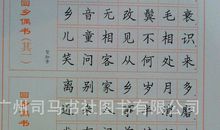 回乡偶书(其一)
贺知章
乡音无改鬓毛衰
儿童相见不相识
笑问客从何处来
离别家乡岁月多
近来人事半消磨
回乡偶书
广州司马书社图书有限公司